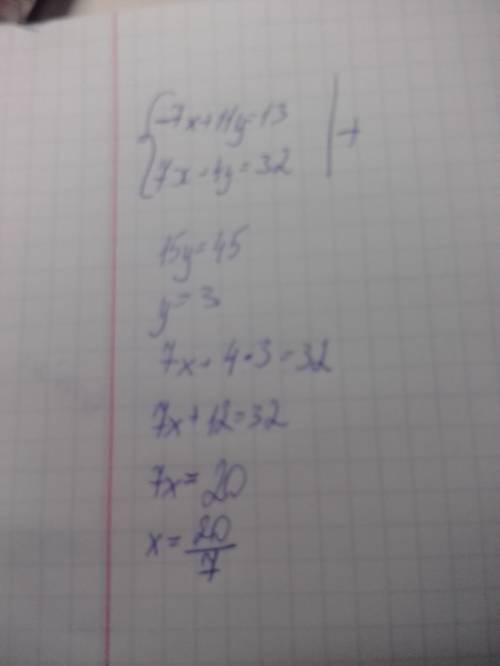 -7x+11y=13
7x+4y=32
+
15y=45
y=3
7x+4•3=32
7x+12=32
7x=20
x=20/7